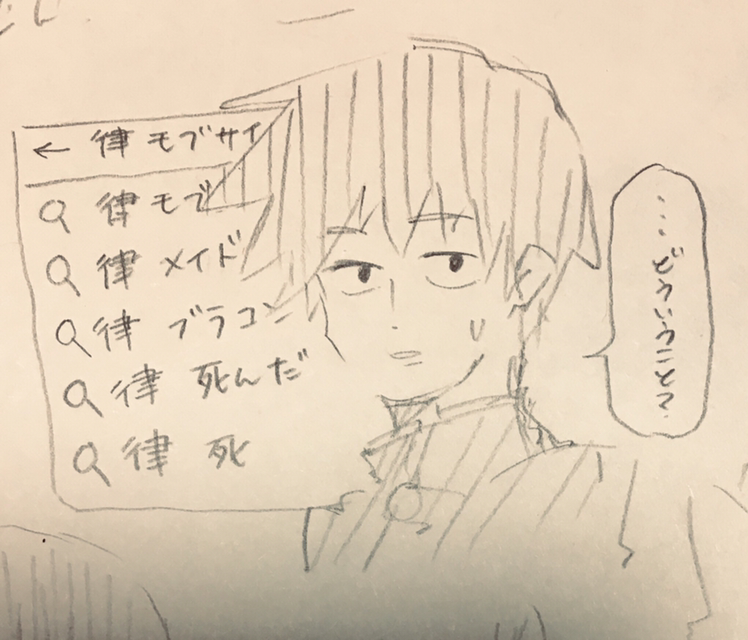 ← 律 モブサイ
律 モブ
律 メイド
律 ブラコン
律 死んだ
律 死
…どういうこと?